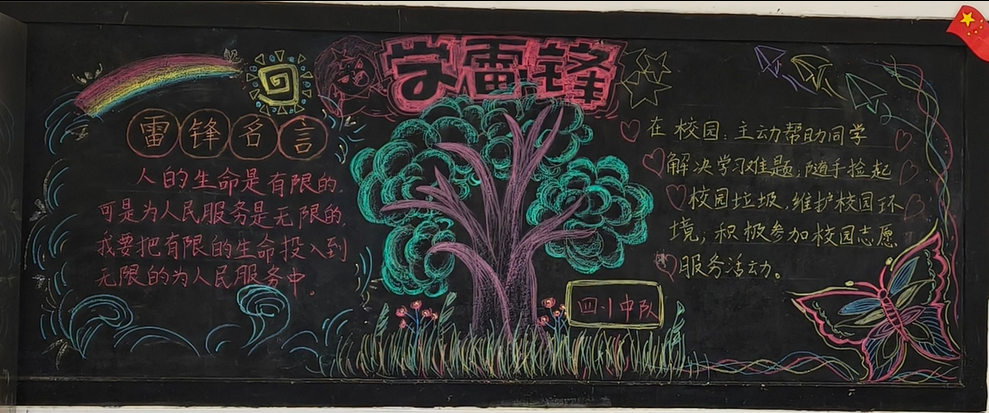 学雷锋
雷锋名言
人的生命是有限的,
可是为人民服务是无限的,
我要把有限的生命投入到
无限的为人民服务中.
在校园:主动帮助同学
解决学习难题;随手捡起
校园垃圾,维护校园环
境;积极参加校园志愿
服务活动。
四小中队